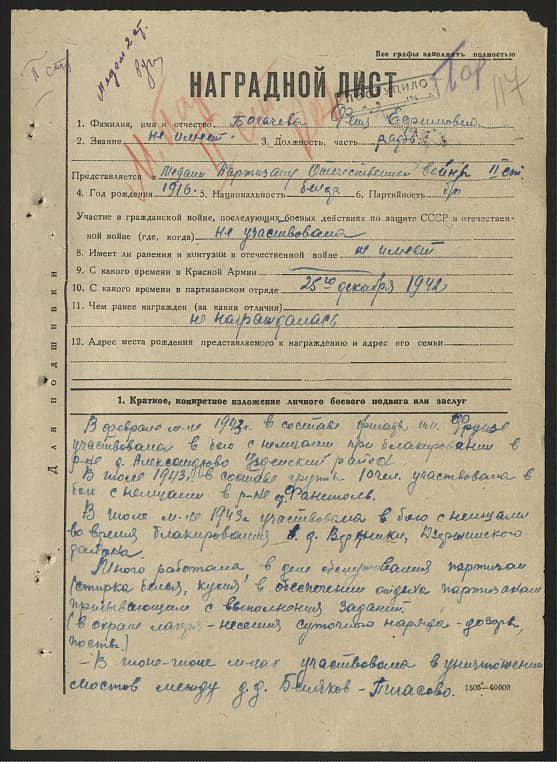 II ст
Медаль 2 ст.
Все графы заполнять полностью
НАГРАДНОЙ ЛИСТ
ПОСТУПИЛО
117
1. Фамилия, имя и отчество Богачева Ефимовна
2. Звание не имеет 3. Должность, часть рядов.
Представляется к Медали Партизану Отечественной войны II ст.
4. Год рождения 1916. 5. Национальность белар. 6. Партийность б/п
Участие в гражданской войне, последующих боевых действиях по защите СССР и отечествен-
ной войне (где, когда) не участвовала
8. Имеет ли ранения и контузии в отечественной войне не имеет
9. С какого времени в Красной Армии
10. С какого времени в партизанском отряде 25го декабря 1942г
11. Чем ранее награжден (за какия отличия)
не награждалась
12. Адрес места рождения представляемого к награждению и адрес его семьи
Для подшивки
1. Краткое, конкретное изложение личного боевого подвига или заслуг
В феврале м-це 1943г. в составе бригады им. Фрунзе
участвовала в бою с немцами при блакировании в
р-не д. Александрово Узденский район.
В июле 1943г. в составе групы 10 чел. участвовала в
бою с немцами в р-не Фаниполь.
В июле м-це 1943г. участвовала в бою с немцами
во время блакирования в д. Вертники, Дзержинского
района.
Много работала в деле обслуживания партизан
(стирка белья, кухня) в обеспечении отдыха партизанам
прибывающим с выполнения заданий.
(в охране лагеря - несения суточного наряда - дозоры,
посты.)
- В июне-июле м-цах участвовала в уничтожении
мостов между д.д. Беляков - Пигасово.
1505—40000